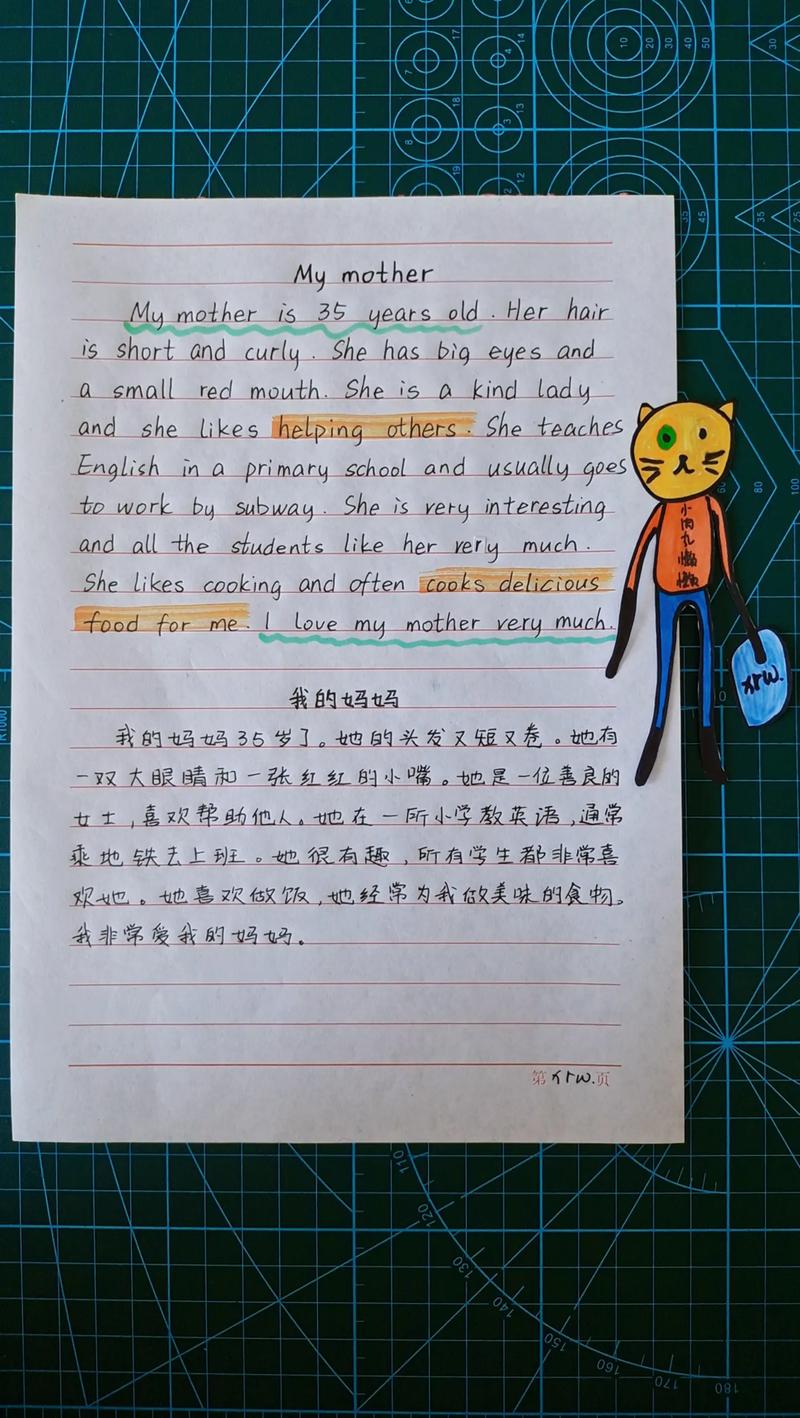 My mother
My mother is 35 years old. Her hair
is short and curly. She has big eyes and
a small red mouth. She is a kind lady
and she likes helping others. She teaches
English in a primary school and usually goes
to work by subway. She is very interesting
and all the students like her very much.
She likes cooking and often cooks delicious
food for me. I love my mother very much.
我的妈妈
我的妈妈35岁了。她的头发又短又卷。她有
一双大眼睛和一张红红的小嘴。她是一位善良的
女士,喜欢帮助他人。她在一所小学教英语,通常
乘地铁去上班。她很有趣,所有学生都非常喜
欢她。她喜欢做饭,她经常为我做美味的食物。
我非常爱我的妈妈。
第xrw.页
小肉丸懒懒
xrw.